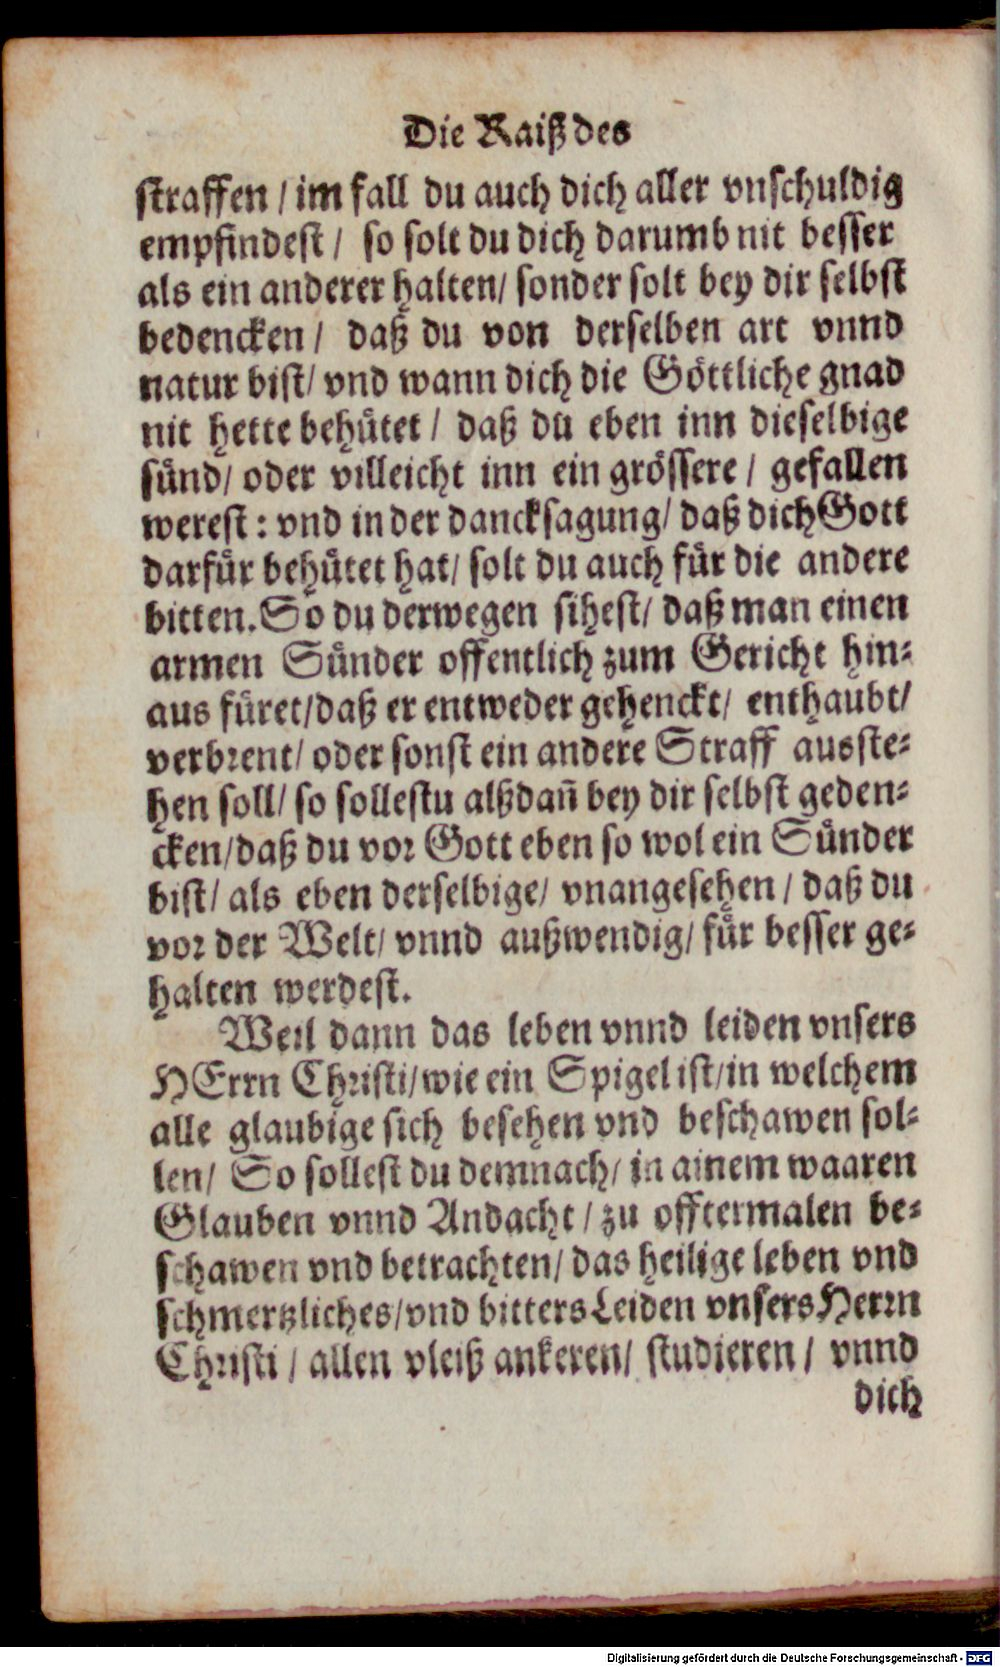 Die Raiß des
straffen / im fall du auch dich aller vnschuldig
empfindest / so solt du dich darumb nit besser
als ein anderer halten / sonder solt bey dir selbst
bedencken / daß du von derselben art vnnd
natur bist / vnd wann dich die Göttliche gnad
nit hette behütet / daß du eben inn dieselbige
sünd / oder villeicht inn ein grössere / gefallen
werest : vnd in der dancksagung / daß dich Gott
darfür behütet hat / solt du auch für die andere
bitten. So du derwegen sihest / daß man einen
armen Sünder offentlich zum Gericht hin-
aus füret / daß er entweder gehenckt / enthaubt /
verbrent / oder sonst ein andere Straff ausste-
hen soll / so sollestu alßdañ bey dir selbst geden-
cken / daß du vor Gott eben so wol ein Sünder
bist / als eben derselbige / vnangesehen / daß du
vor der Welt / vnnd außwendig / für besser ge-
halten werdest.
Weil dann das leben vnnd leiden vnsers
HErrn Christi / wie ein Spigel ist / in welchem
alle glaubige sich besehen vnd beschawen sol-
len / So sollest du demnach / in ainem waaren
Glauben vnnd Andacht / zu offtermalen be-
schawen vnd betrachten / das heilige leben vnd
schmertzliches / vnd bitters Leiden vnsers Herrn
Christi / allen vleiß ankeren / studieren / vnnd
dich
Digitalisierung gefördert durch die Deutsche Forschungsgemeinschaft - DFG